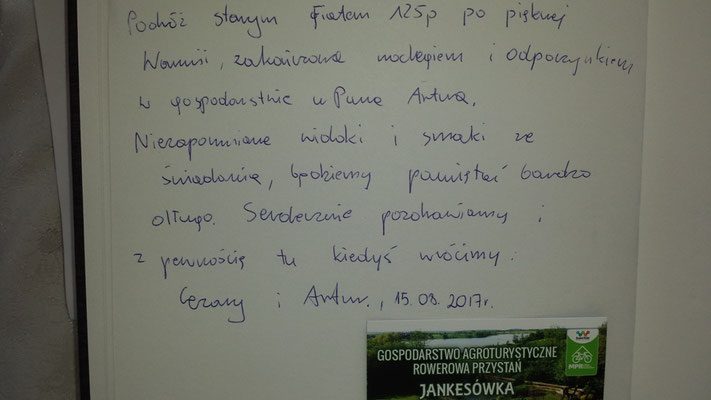 Podróż starym Fiatem 125p po pięknej
Warmii, zakończona noclegiem i odpoczynkiem
w gospodarstwie u Pana Artura.
Niezapomniane widoki i smaki ze
śniadania, będziemy pamiętać bardzo
długo. Serdecznie pozdrawiamy i
z pewnością tu kiedyś wrócimy.
Cezary i Artur., 15.08.2017r.
GOSPODARSTWO AGROTURYSTYCZNE
ROWEROWA PRZYSTAŃ
JANKESÓWKA
MPR